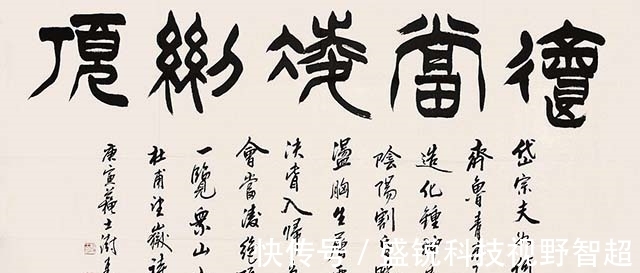 會當凌絕頂
岱宗夫如
齊魯青
造化鍾
陰陽割
盪胸生
決眥入歸
會當凌絕
一覽眾山
杜甫望嶽詩
庚寅蘇士澍
快传号 / 盛锐科技视野智超